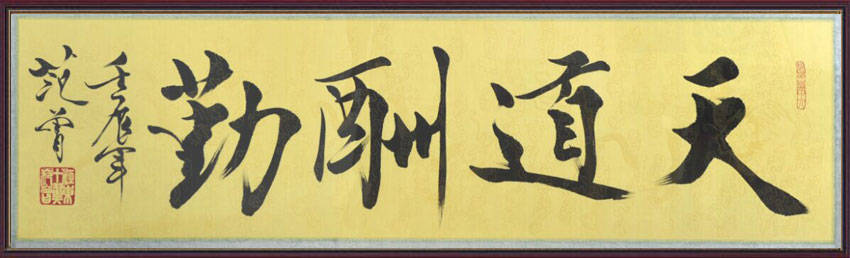 天道酬勤
壬辰年
范曾